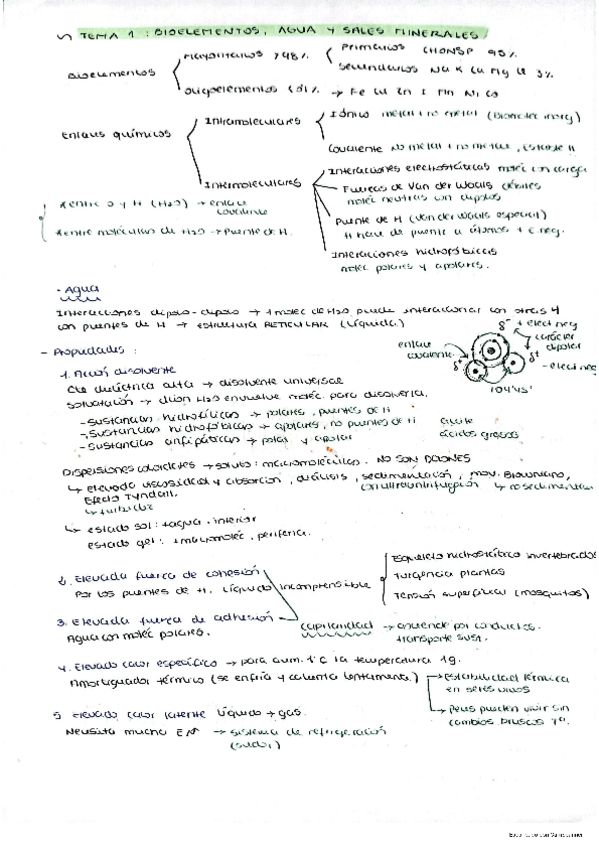 TEMA 1 : BIOELEMENTOS, AGUA Y SALES MINERALES
Bioelementos
Mayoritarios > 98%
Primarios CHONSP 95%
Secundarios Na K Ca Mg Cl 3%
Oligoelementos <0'1% → Fe Cu Zn I Mn Ni Co
Enlaces químicos
Intramoleculares
Iónico metal + no metal
Covalente No metal + no metal, estable
Intermoleculares
Interacciones electrostáticas moléc con carga
Fuerzas de Van der Waals débiles
moléc neutras con dipolos
Puente de H (Van der Waals especial)
H hace de puente a átomos + e.neg.
Interacciones hidrofóbicas
molec polares y apolares.
*entre O y H (H2O) → enlace
covalente
*entre moléculas de H2O → Puente de H.
- Agua
Interacciones dipolo-dipolo → 1 molec de H2O puede interaccionar con otras 4
con puentes de H → estructura RETICULAR (líquida)
enlace
covalente
δ- + elect neg
carácter
dipolar
δ+
δ+
- elect neg
104'45'
- Propiedades :
1. Acción disolvente
Cte dieléctrica alta → disolvente universal
Solvatación → H2O envuelve moléc para disolverla.
- sustancias hidrofílicas → polares, puentes de H
- sustancias hidrofóbicas → apolares, no puentes de H aceite
- sustancias anfipáticas → polar y apolar ácidos grasos
Dispersiones coloidales → soluto: macromoléculas. NO SON IONES
↳ elevada viscosidad y absorción, diálisis, sedimentación, mov. Browniano,
con ultracentrifugación ↳ no sedimentan
Efecto Tyndall.
↳ turbidez
↳ estado sol: +agua. interior
estado gel: +macromoléc, periferia.
2. Elevada fuerza de cohesión
Por los puentes de H. Líquido incomprensible
Esqueleto hidrostático invertebrados
Turgencia plantas
Tensión superficial (mosquitos)
3. Elevada fuerza de adhesión
Agua con moléc polares.
capilaridad → asciende por conductos.
transporte sust.
4. Elevado calor específico → para aum. 1°C la temperatura 1g.
Amortiguador térmico (se enfría y calienta lentamente)
→ Estabilidad térmica
en seres vivos
↳ Peces pueden vivir sin
cambios bruscos Tª.
5 Elevado calor latente líquido → gas.
Necesita mucha EN → sistema de refrigeración
(sudor)